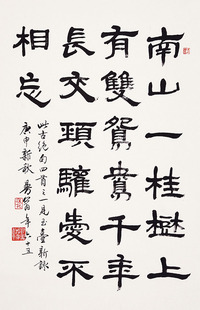 南山一桂樹上
有雙鴛鴦千年
長交頸驩愛不
相忘
此古絕句四首之一見玉臺新詠
庚申新秋